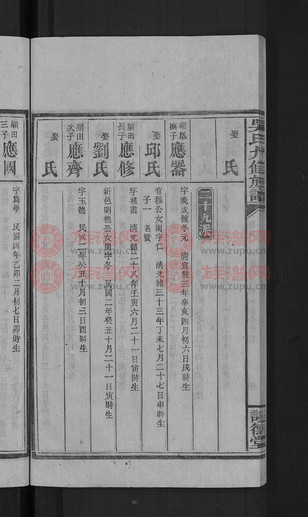 吳氏九修族譜
二十九派
娶 氏
應器
字 成 冬元 清宣統三年辛亥四月初六日戌時生
娶 邱氏
有福公女閏字仁 清光緒三十三年丁未七月二十七日申時生
子一 名贊
顯田長子 應修
字 清光緒二十八年壬寅六月二十一日寅時生
娶 劉氏
新邑明德公女閏字冬 民國二年癸丑十月二十一日寅時生
顯田次子 應齊
字玉德 民國二年癸丑十月初三日酉時生
娶 氏
顯田三子 應國
字爲學 民國四年乙卯二月初七日卯時生
族譜網
www.zupu.cn